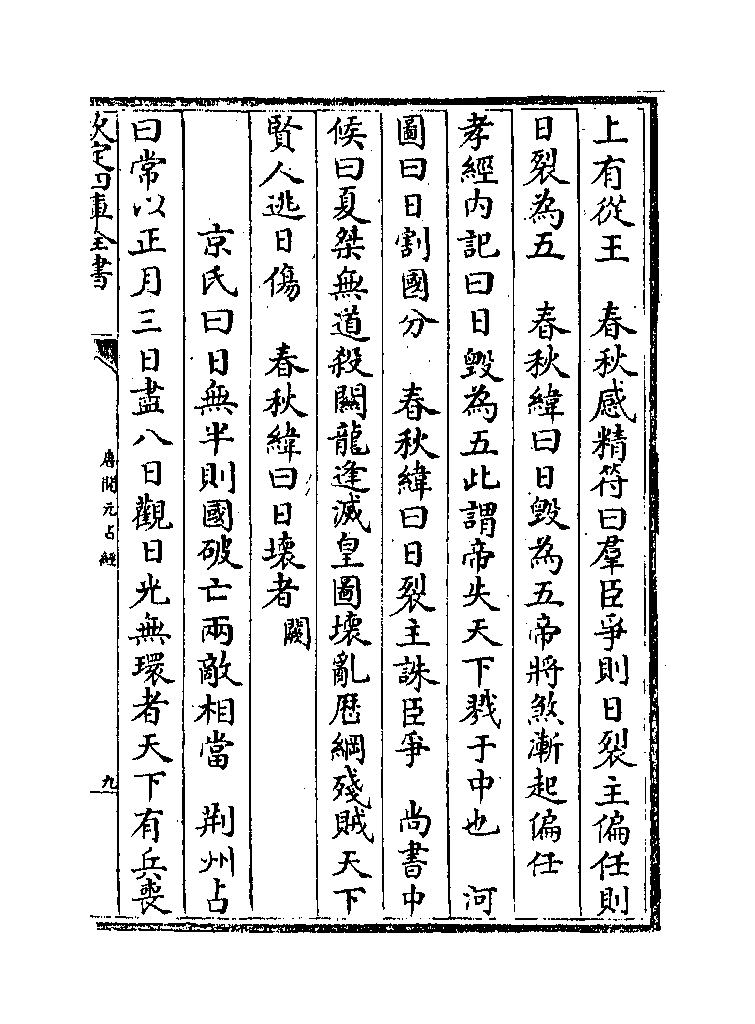 上有從王　春秋感精符曰羣臣爭則日裂主偏任則
日裂為五　春秋緯曰日毀為五帝將煞漸起偏任
孝經内記曰日毀為五此謂帝失天下戮于中也　河
圖曰日割國分　春秋緯曰日裂主誅臣爭　尚書中
候曰夏桀無道殺關龍逢滅皇圖壞亂歴綱殘賊天下
賢人逃日傷　春秋緯曰日壞者闕
京氏曰日無半則國破亡兩敵相當　荆州占
曰常以正月三日盡八日觀日光無環者天下有兵喪
欽定四庫全書
唐開元占經
九